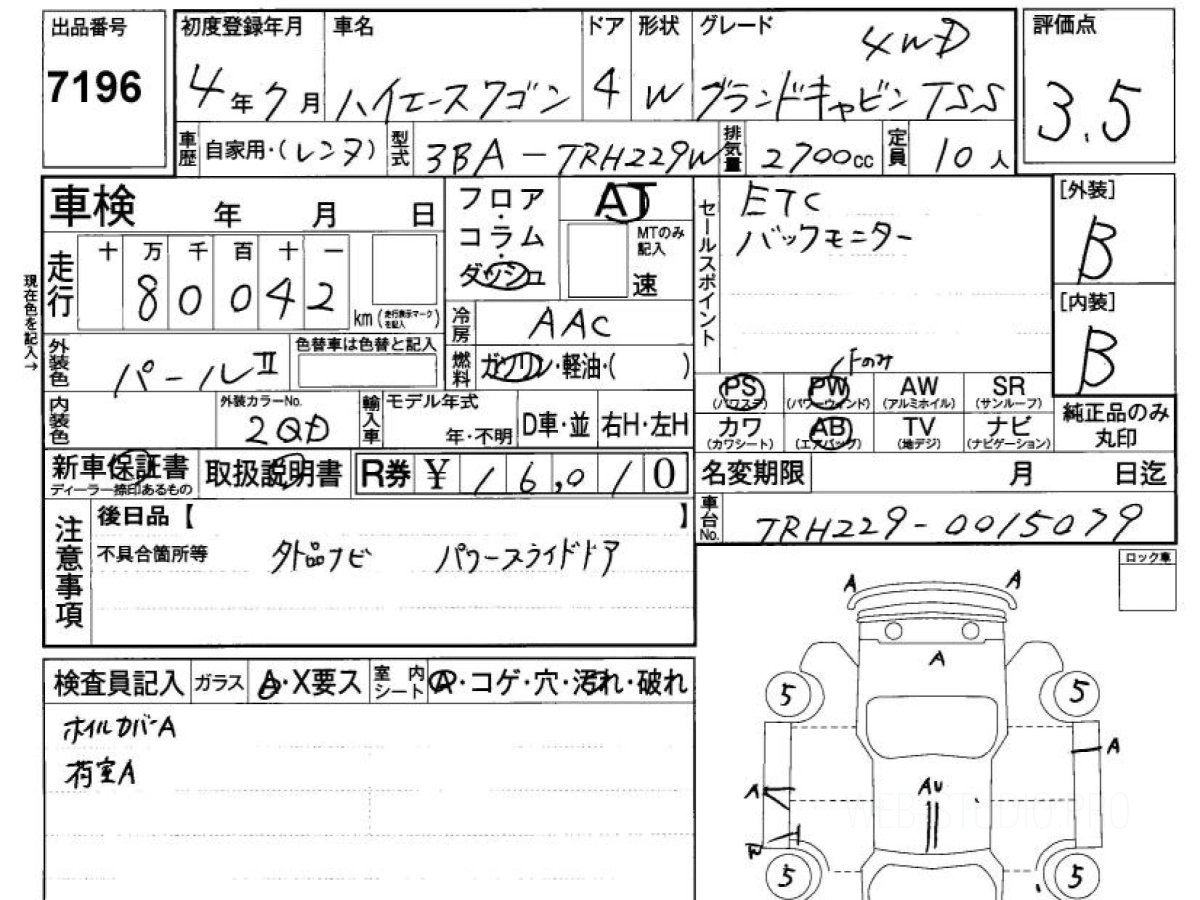 出品番号
7196
初度登録年月 車名 ドア 形状 グレード
4年7月 ハイエースワゴン 4 W グランドキャビン TSS
4WD
評価点
3.5
車歴 自家用・(レンタ) 型式 3BA-TRH229W 排気量 2700cc 定員 10人
車検 年 月 日
フロア・コラム・ダッシュ
AT
MTのみ記入
速
セールスポイント
ETC
バックモニター
[外装]
B
[内装]
B
現在色を記入→
走行 十 万 千 百 十 一
8 0 0 4 2 km(走行表示マークを記入)
冷房 AAC
燃料 ガソリン・軽油・( )
外装色 パールⅡ 色替車は色替と記入
Fのみ
PS(パワステ) PW(パワーウィンド) AW(アルミホイル) SR(サンルーフ)
カワ(カワシート) AB(エアバッグ) TV(地デジ) ナビ(ナビゲーション)
純正品のみ丸印
内装色 外装カラーNo. 2QD 輸入車 モデル年式 年・不明 D車・並 右H・左H
新車保証書 ディーラー捺印あるもの 取扱説明書 R券 ¥ 16,010
名変期限 月 日迄
車台No. TRH229-0015079
注意事項
後日品【 】
不具合箇所等 外品ナビ パワースライドドア
ロック車
検査員記入 ガラス A・X要ス 室内シート A・コゲ・穴・汚れ・破れ
ホイルカバーA
荷室A
A A
A
5 5
A
A AU
5 5
WEB-STUDIO.PRO